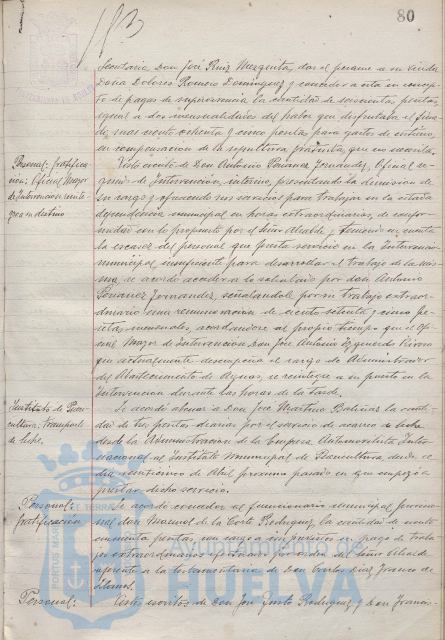 80
Secretario Don José Ruiz Mergenta, dar el pésame a su viuda
Doña Dolores Romero Dominguez y conceder a esta en concep-
to de pagas de supervivencia la cantidad de pesetas
igual a dos mensualidades del haber que disfrutaba el fina-
do, mas ciento ochenta y cinco pesetas para gastos de entierro,
en compensación de la sepultura gratuita, que no necesita.
Personal: gratifica-
ción: Oficial Mayor
de Intervención reinte-
gra en destino
Visto escrito de Don Antonio Fernandez, Oficial se-
gundo de Intervención, interino, presentando la dimisión de
su cargo y ofreciendo sus servicios para trabajar en la citada
dependencia municipal en horas extraordinarias, de confor-
midad con lo propuesto por el Señor Alcalde y teniendo en cuenta
la escasez del personal que presta servicio en la Intervención
municipal insuficiente para desarrollar el trabajo de la mis-
ma, se acordó acceder a lo solicitado por don Antonio
Fernandez, señalandole por su trabajo extraor-
dinario una remuneración de ciento setenta y cinco pe-
setas mensuales, acordandose al propio tiempo que el Ofi-
cial Mayor de Intervención Don José Antonio Izquierdo
que actualmente desempeña el cargo de Administrador
del Abastecimiento de Aguas, se reintegre a su puesto en la
Intervención durante las horas de la tarde.
Instituto de Pueri-
cultura: Transporte
de leche.
Se acordó abonar a Don José Martin la canti-
dad de tres pesetas diarias por el servicio de acarreo de leche
desde la Administración de la Empresa Automovilista Inter-
nacional al Instituto Municipal de Puericultura, desde el
dia veinticinco de Abril proximo pasado en que empezó a
prestar dicho servicio.
Personal:
gratificación
Se acordó conceder al funcionario municipal
don Manuel de la Corte Rodriguez, la cantidad de ciento
cincuenta pesetas, con cargo a imprevistos en pago de traba-
jos extraordinarios efectuados por orden del Señor Alcalde
referente a la testamentaria de Don Carlos Diaz Franco de
Llanos.
Personal:
Visto escritos de Don José Justo Rodriguez y Don Francis-
PORTUS MARIS ET TERRAE
HUELVA